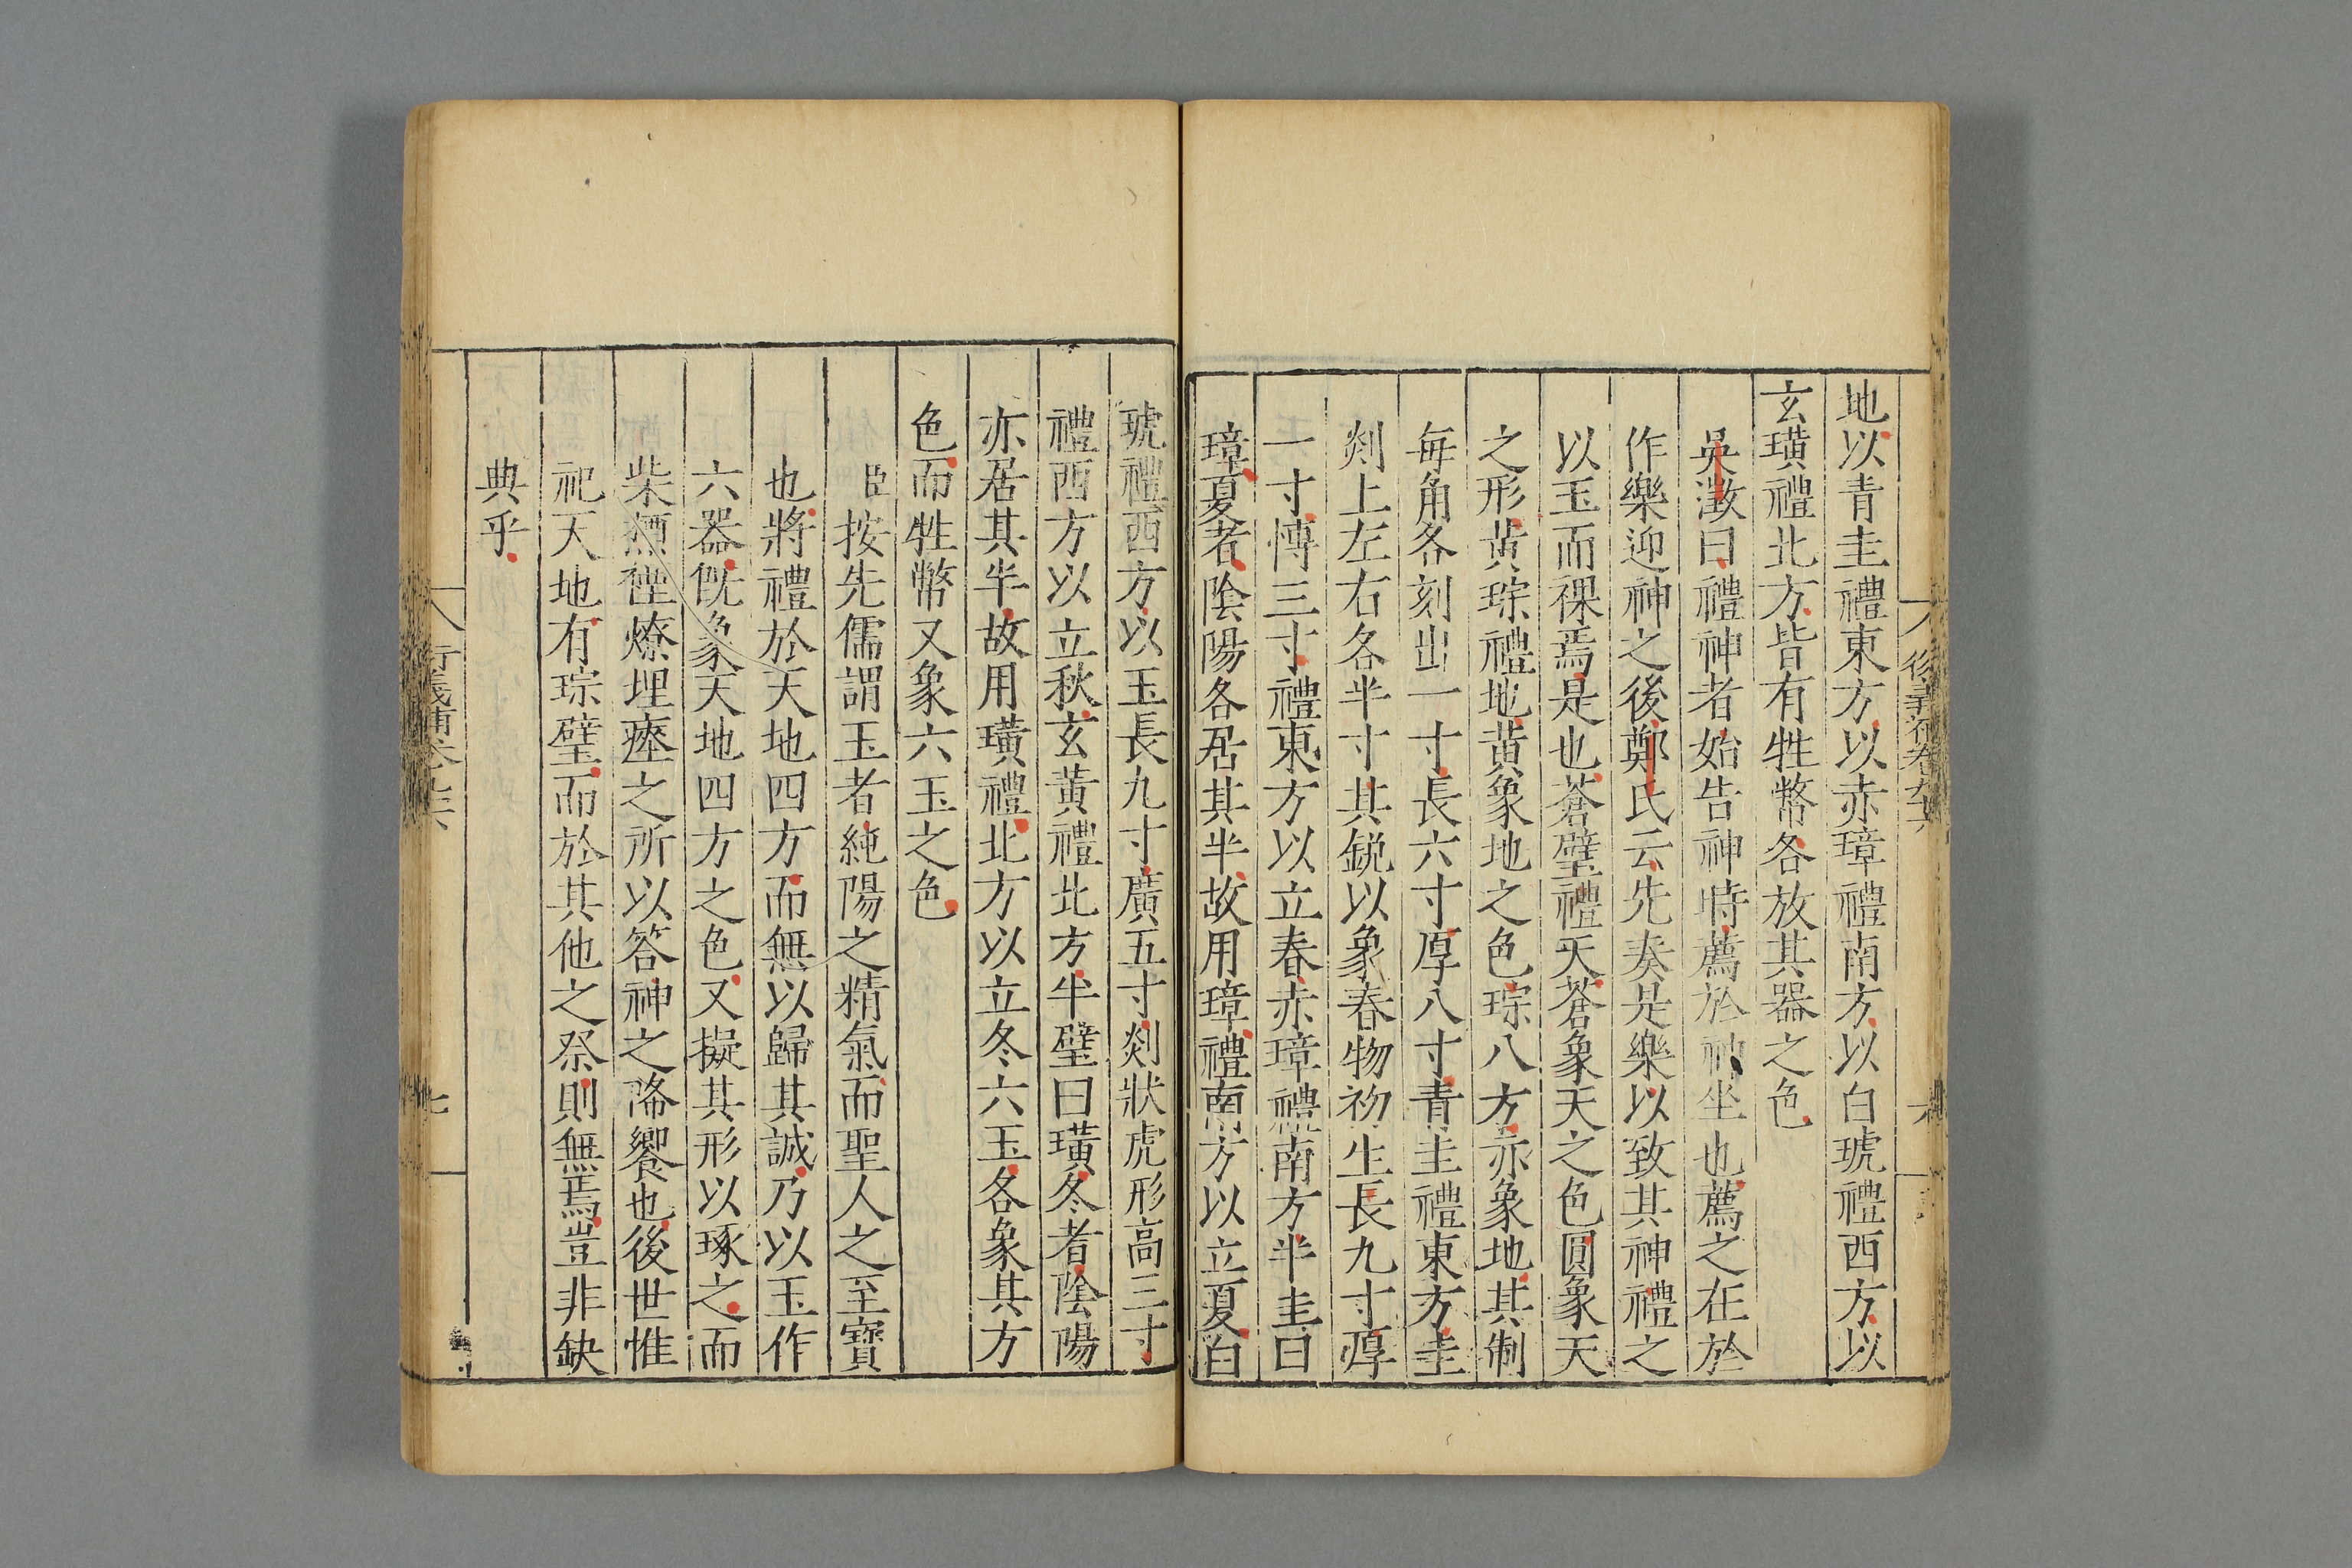 地以青圭禮東方以赤璋禮南方以白琥禮西方以
玄璜禮北方皆有牲幣各放其器之色
吳澂曰禮神者始告神時薦於神坐也薦之在於
作樂迎神之後鄭氏云先奏是樂以致其神禮之
以玉而祼焉是也蒼璧禮天蒼象天之色圓象天
之形黃琮禮地黃象地之色琮八方亦象地其制
每角各刻出一寸長六寸厚八寸青圭禮東方圭
剡上左右各半寸其銳以象春物初生長九寸厚
一寸博三寸禮東方以立春赤璋禮南方半圭曰
璋夏者陰陽各居其半故用璋禮南方以立夏白
琥禮西方以玉長九寸廣五寸剡狀虎形高三寸
禮西方以立秋玄黃禮北方半璧曰璜冬者陰陽
亦居其半故用璜禮北方以立冬六玉各象其方
色而牲幣又象六玉之色
臣按先儒謂玉者純陽之精氣而聖人之至寶
也將禮於天地四方而無以歸其誠乃以玉作
六器旣象天地四方之色又擬其形以琢之而
柴槱禋燎埋瘞之所以答神之降饗也後世惟
祀天地有琮璧而於其他之祭則無焉豈非缺
典乎